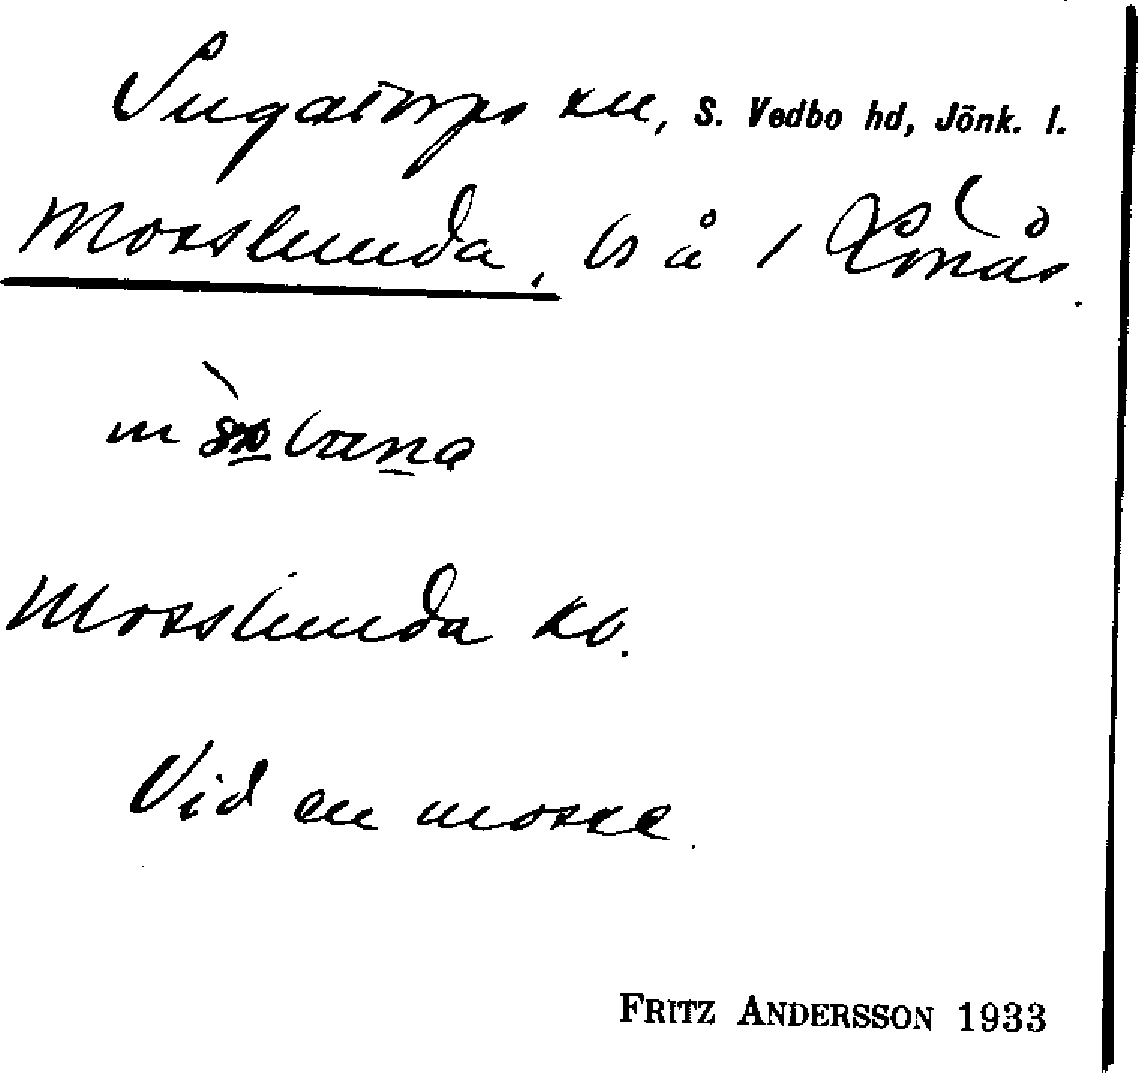 Ingatorps sn, S. Vedbo hd, Jönk. l.
Mosslunda, ls å 1
Mosslunda kb.
Vid en mosse.
FRITZ ANDERSSON 1933